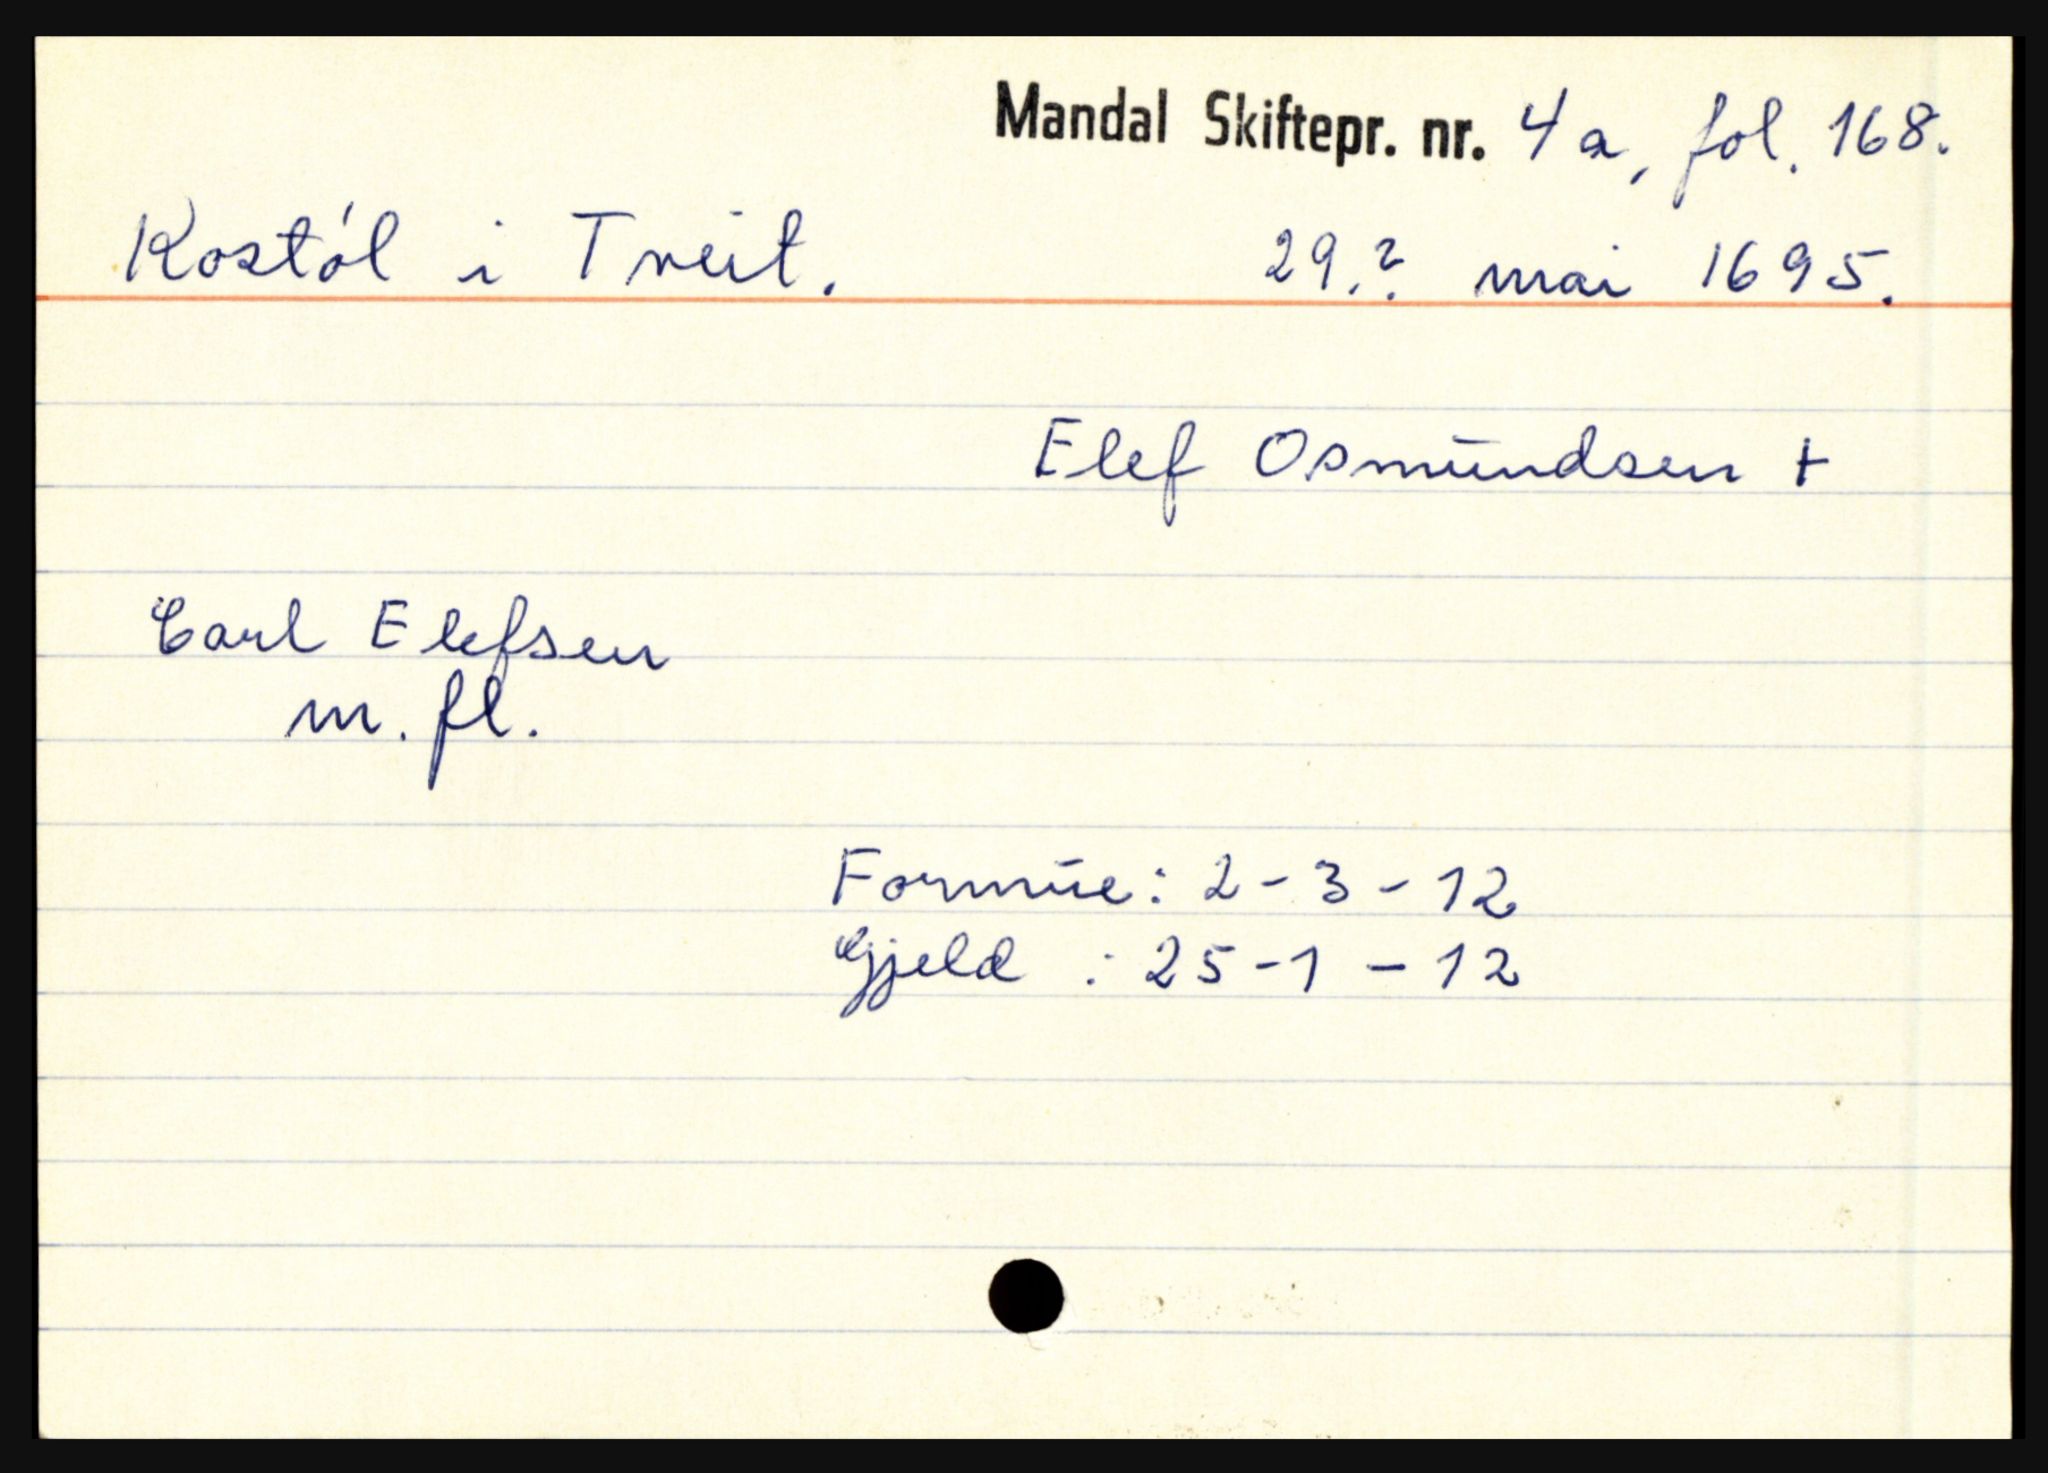 Mandal Skiftepr. nr. 4a, fol. 168.
Kostøl i Tveit. 29.? mai 1695.
Elef Osmundsen +
Carl Elefsen
m. fl.
Formue: 2-3-12
Gjeld : 25-1-12